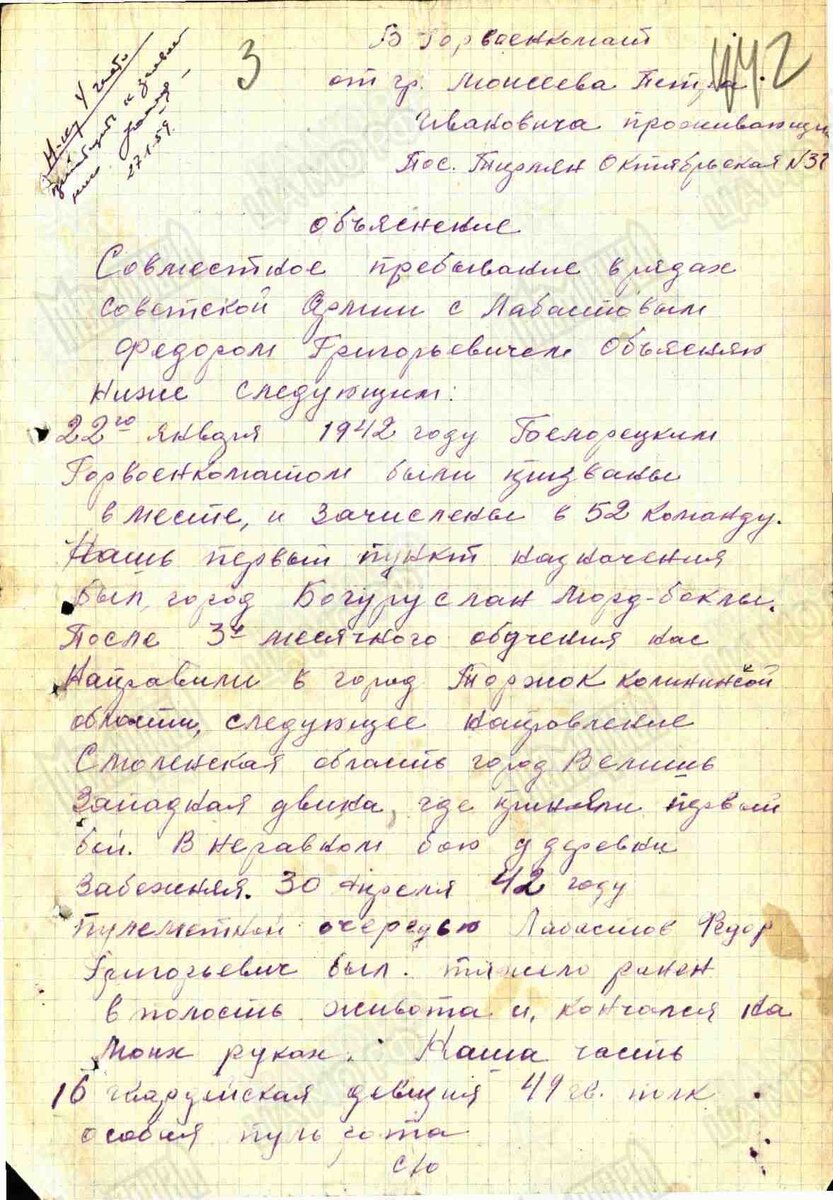 3
442
27.1.59.
В Горвоенкомат
от гр. Моисеева Петра
Ивановича проживающи
Пос. Тирлян Октябрьская №37
Объяснение
Совместное пребывание в рядах
советской Армии с Лабастовым
Федором Григорьевичем Объясняю
ниже следующим:
22го января 1942 году Белорецким
Горвоенкоматом были призваны
вместе, и зачислены в 52 команду.
Нашь первый пункт назначения
был, город Богуруслан Морд-боклы.
После 3х месячного обучения нас
Направили в город Торжок Калининской
области, следующее направление
Смоленская область город Велишь
Западная двина, где приняли первый
бой. В неравном бою у деревни
Забежняя. 30 апреля 42 году
пулеметной очередью Лабастов Федор
Григорьевич был. тяжело ранен
в полость живота и, кончался на
моих руках. Наша часть
16 гвардейская девизия 49 гв. полк
особая пуль рота
с/о